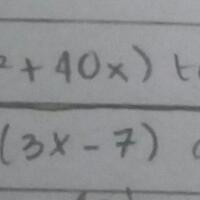 ² + 40x) t
(3x - 7)